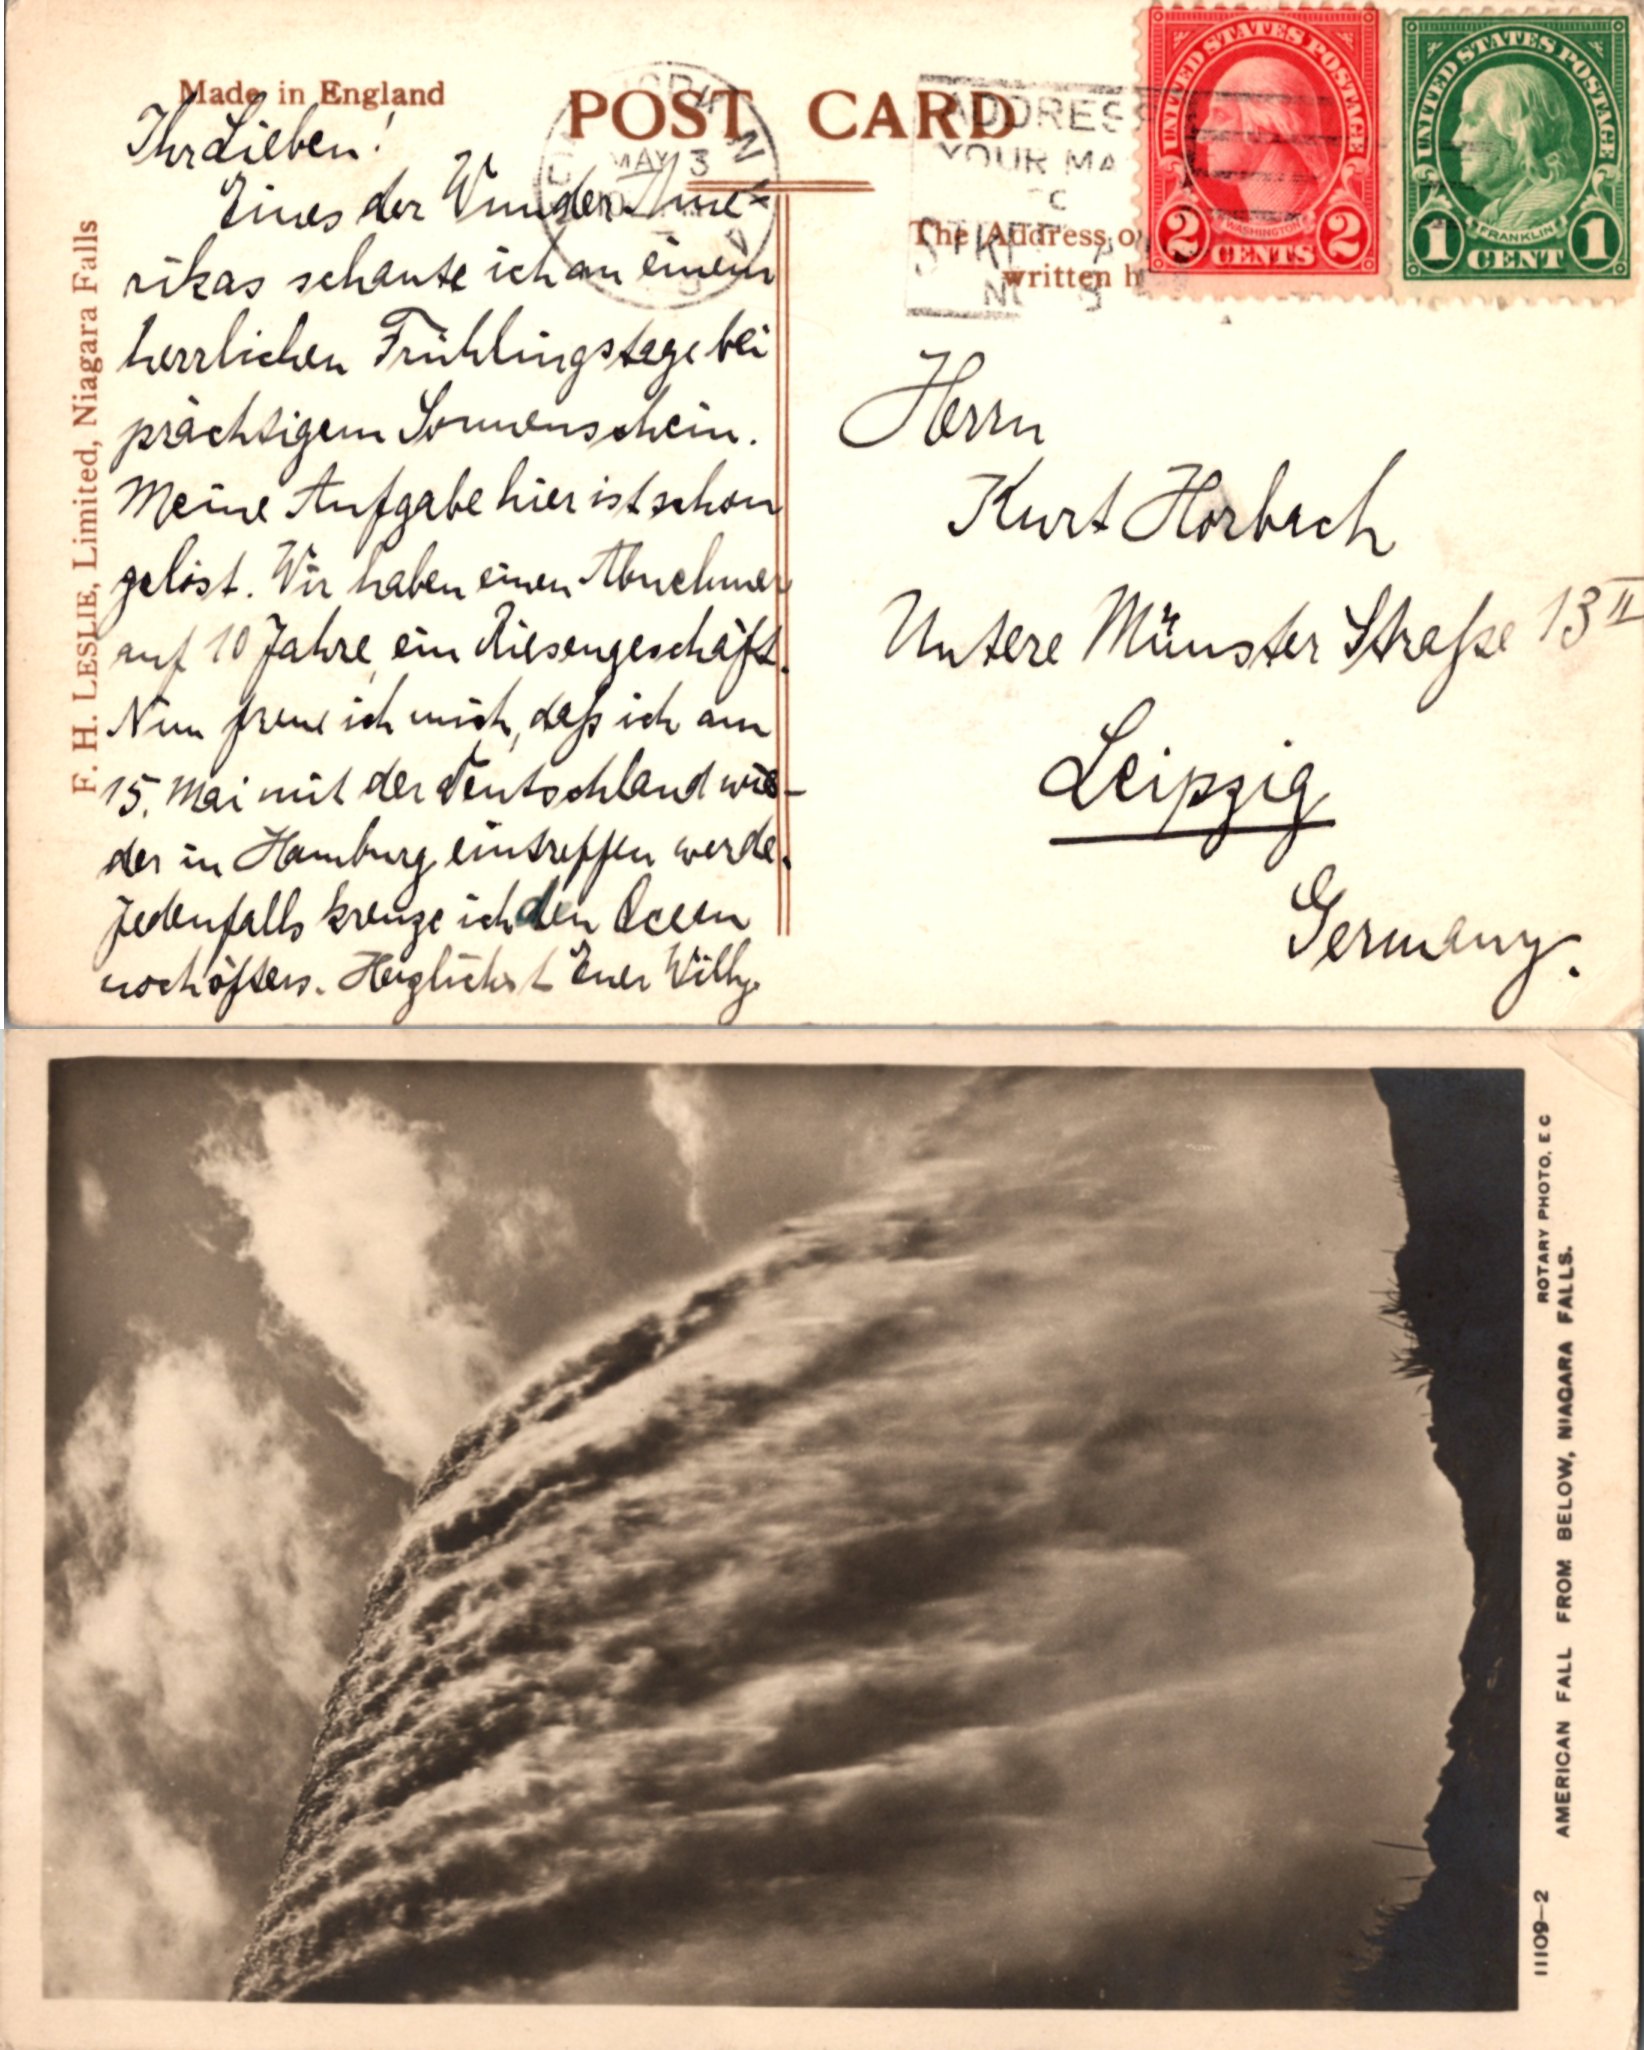 Made in England
POST CARD
MAY 3
ADDRESS
YOUR MA
The Address o
written h
UNITED STATES POSTAGE
WASHINGTON
2 CENTS 2
UNITED STATES POSTAGE
FRANKLIN
1 CENT 1
F. H. LESLIE, Limited, Niagara Falls
Ihr Lieben!
Eines der Wunder Ame-
rikas schaute ich an einem
herrlichen Frühlingstage bei
prächtigem Sonnenschein.
Meine Aufgabe hier ist schon
gelöst. Wir haben einen Abnehmer
auf 10 Jahre, ein Riesengeschäft.
Nun freue ich mich, daß ich am
15. Mai mit der Deutschland wie-
der in Hamburg eintreffen werde.
Jedenfalls kreuze ich den Ocean
noch öfters. Herzlichst Euer Willy.
Herrn
Kurt Horbach
Untere Münster Straße 13 II
Leipzig
Germany.
ROTARY PHOTO, E C
11109-2 AMERICAN FALL FROM BELOW, NIAGARA FALLS.